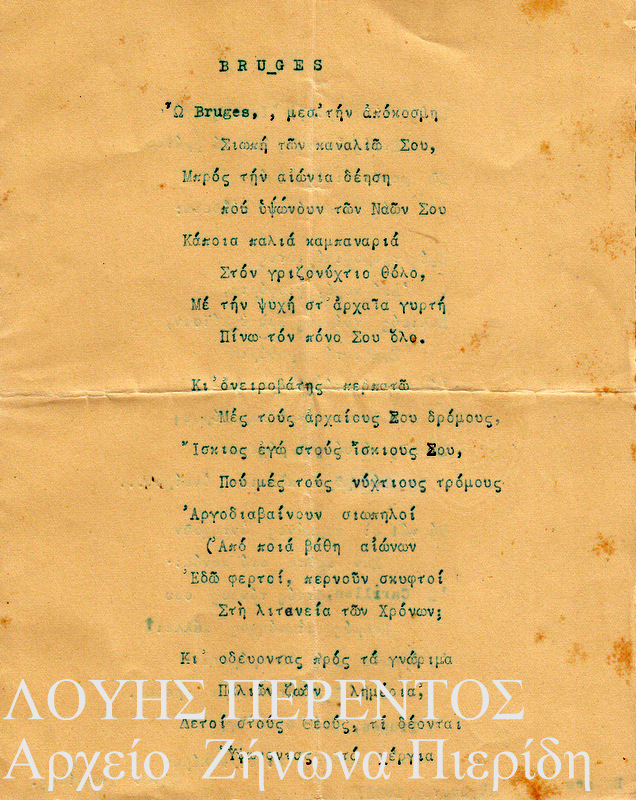 BRUGES
Ὦ Bruges, , μεσ' τήν ἀπόκοσμη
Σιωπή τῶν καναλιῶ Σου,
Μπρός τήν αἰώνια δέηση
πού ὑψώνουν τῶν Ναῶν Σου
Κάποια παλιά καμπαναριά
Στόν γριζονύχτιο Θόλο,
Μέ τήν ψυχή στ' ἀρχαῖα γυρτή
Πίνω τόν πόνο Σου ὅλο.
Κι' ὀνειροβάτης περπατῶ
Μές τούς ἀρχαίους Σου δρόμους,
Ἴσκιος ἐγώ στούς ἴσκιους Σου,
Πού μές τούς νύχτιους τρόμους
Ἀργοδιαβαίνουν σιωπηλοί
(Ἀπό ποιά βάθη αἰώνων
Ἐδῶ φερτοί, περνοῦν σκυφτοί
Στή λιτανεία τῶν Χρόνων;
Κι' ὁδεύοντας πρός τά γνώριμα
ΛΟΥΗΣ ΠΕΡΕΝΤΟΣ
Παλιῶν ζωῶν λημέρια,
Δετοί στούς Θεούς, τί δέονται
Αρχείο Ζήνωνα Πιερίδη
τά χέρια